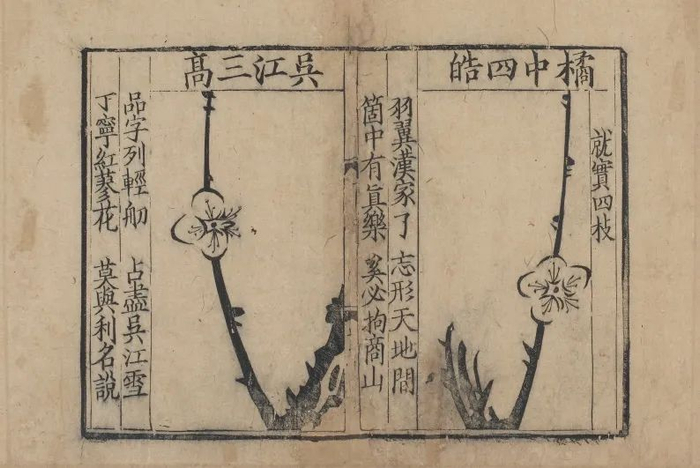 橘中四皓
就實四枝
羽翼漢家了 志形天地間
箇中有眞樂 奚必拘商山
吳江三髙
品字列輕舠 占盡吳江雪
丁寧紅蓼花 莫與利名說